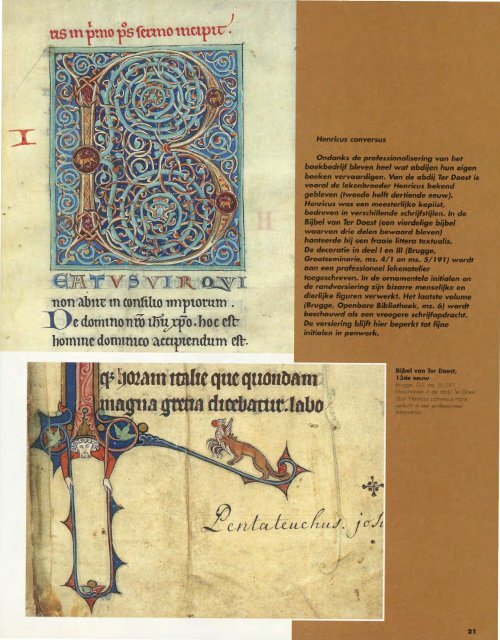 tis in p̄mo p̄s sermo incipit.
I
B
EATUS VIR QVI
non abiit in consilio impiorum.
De domino n̄ro ih̄u xp̄o. hoc est
homine dominico accipiendum est.
magna grecia dicebatur. labo
Pentateuchus. josu
Henricus conversus
Ondanks de professionalisering van het
boekbedrijf bleven heel wat abdijen hun eigen
boeken vervaardigen. Van de abdij Ter Doest is
vooral de lekenbroeder Henricus bekend
gebleven (tweede helft dertiende eeuw).
Henricus was een meesterlijke kopiist,
bedreven in verschillende schrijfstijlen. In de
Bijbel van Ter Doest (een vierdelige bijbel
waarvan drie delen bewaard bleven)
hanteerde hij een fraaie littera textualis.
De decoratie in deel I en III (Brugge,
Grootseminarie, ms. 4/1 en ms. 5/191) wordt
aan een professioneel lekenatelier
toegeschreven. In de ornamentele initialen en
de randversiering zijn bizarre menselijke en
dierlijke figuren verwerkt. Het laatste volume
(Brugge, Openbare Bibliotheek, ms. 6) wordt
beschouwd als een vroegere schrijfopdracht.
De versiering blijft hier beperkt tot fijne
initialen in penwerk.
Bijbel van Ter Doest,
13de eeuw
Brugge, GS, ms. 5/191
Geschreven in de abdij Ter Doest
door Henricus conversus maar
verlucht in een professioneel
lekenatelier
21